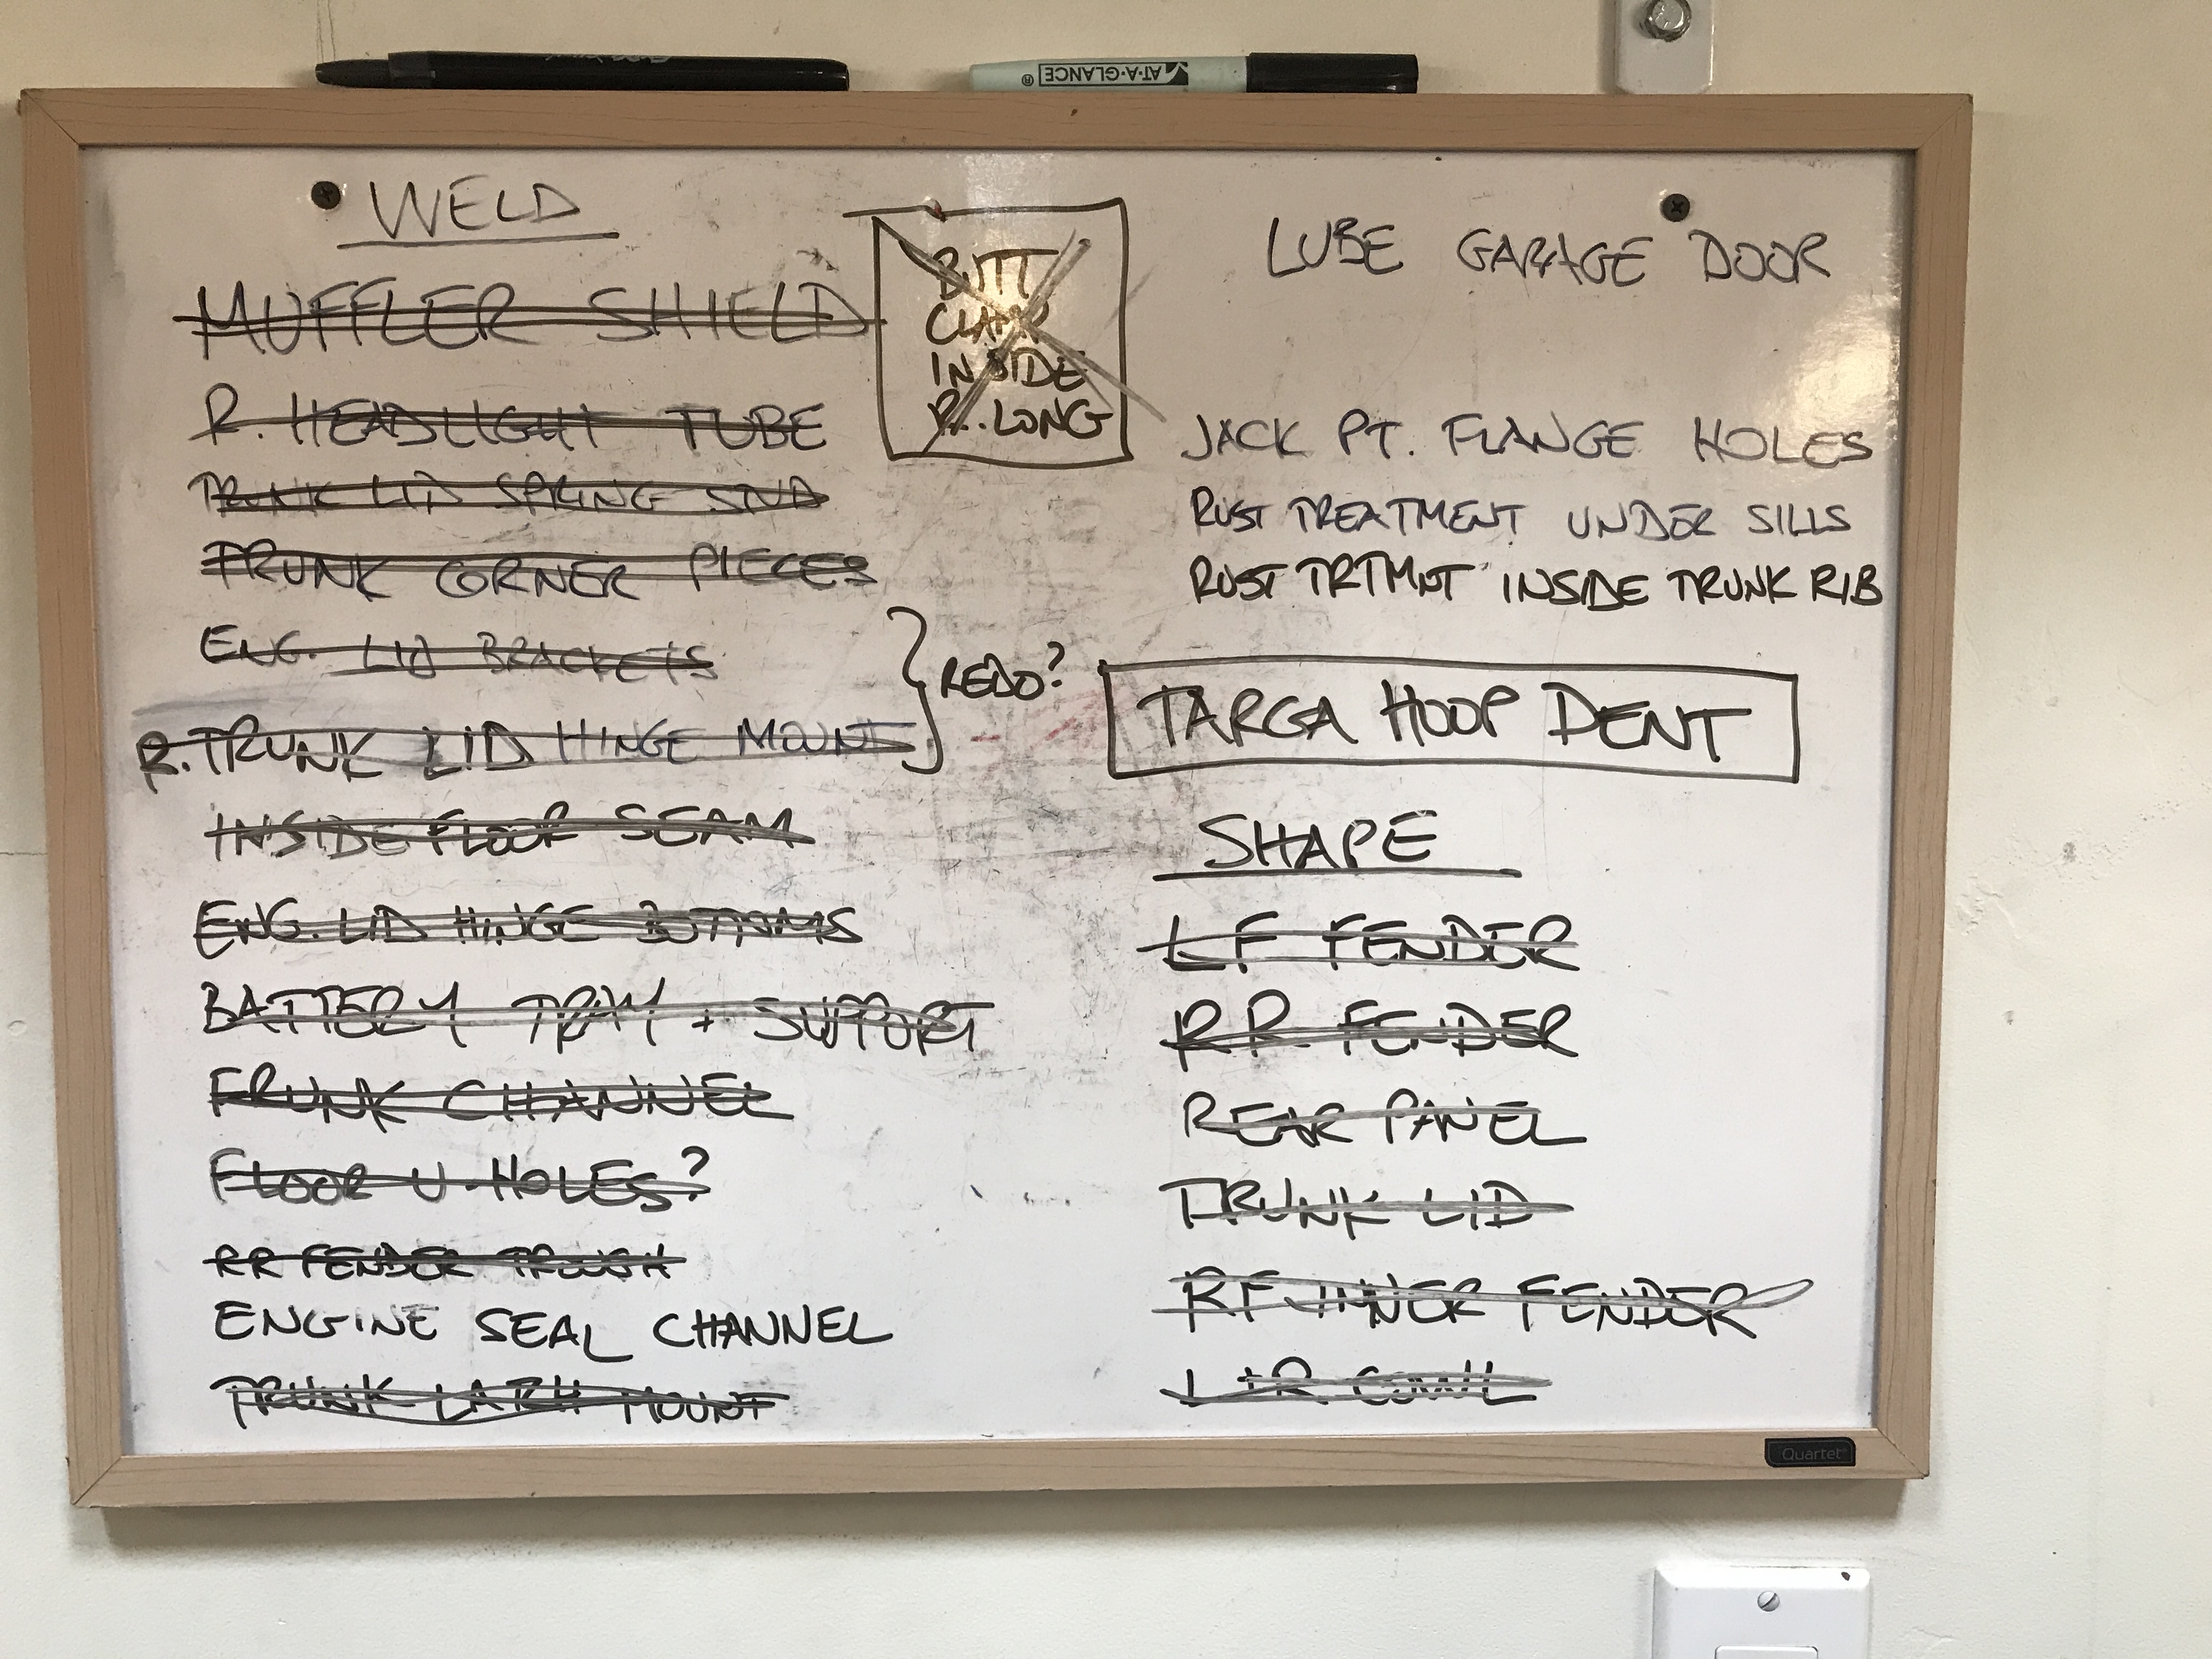 AT-A-GLANCE®
WELD
MUFFLER SHIELD
R. HEADLIGHT TUBE
TRUNK LID SPRING STUD
TRUNK CORNER PIECES
ENG. LID BRACKETS
R. TRUNK LID HINGE MOUNT
REDO?
INSIDE FLOOR SEAM
ENG. LID HINGE BOTTOMS
BATTERY TRAY + SUPPORT
FRUNK CHANNEL
FLOOR U-HOLES?
RR FENDER TROUGH
ENGINE SEAL CHANNEL
TRUNK LATCH MOUNT
BUTT
CLAMP
INSIDE
R. LONG
LUBE GARAGE DOOR
JACK PT. FLANGE HOLES
RUST TREATMENT UNDER SILLS
RUST TRTMNT INSIDE TRUNK RIB
TARGA HOOP DENT
SHAPE
LF FENDER
RR. FENDER
REAR PANEL
TRUNK LID
RF INNER FENDER
L + R COWL
Quartet